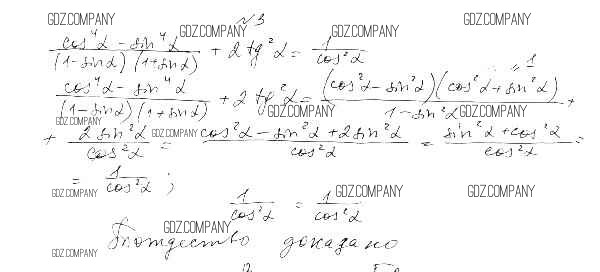 GDZ.COMPANY №3 GDZ.COMPANY
(cos⁴α - sin⁴α)/((1-sinα)(1+sinα)) + 2tg²α = 1/cos²α GDZ.COMPANY
(cos⁴α - sin⁴α)/((1-sinα)(1+sinα)) + 2tg²α = ((cos²α - sin²α)(cos²α + sin²α))/(1-sin²α) + "1
GDZ.COMPANY GDZ.COMPANY GDZ.COMPANY
+ 2sin²α/cos²α = (cos²α - sin²α + 2sin²α)/cos²α = (sin²α + cos²α)/cos²α = GDZ.COMPANY
= 1/cos²α ;
GDZ.COMPANY GDZ.COMPANY GDZ.COMPANY
1/cos²α = 1/cos²α
GDZ.COMPANY
Тождество доказано
GDZ.COMPANY